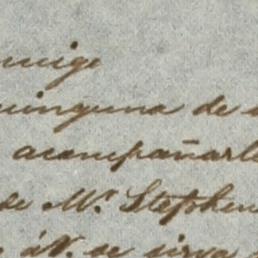 amigo
ninguna de
acompañarle
de Mr. Stephen
á V. se sirva